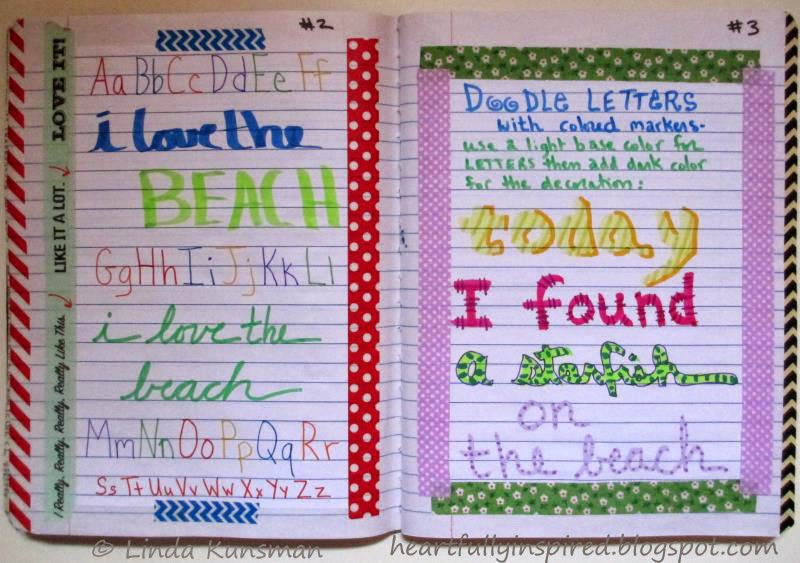 #2
I Really, Really, Really, Really Like This. LIKE IT A LOT. LOVE IT!
Aa Bb Cc Dd Ee Ff
i love the
BEACH
Gg Hh Ii Jj Kk Ll
i love the
beach
Mm Nn Oo Pp Qq Rr
Ss Tt Uu Vv Ww Xx Yy Zz
#3
DOODLE LETTERS
with colored markers-
use a light base color for
LETTERS then add dark color
for the decoration:
today
I found
a starfish
on
the beach
© Linda Kunsman heartfullyinspired.blogspot.com